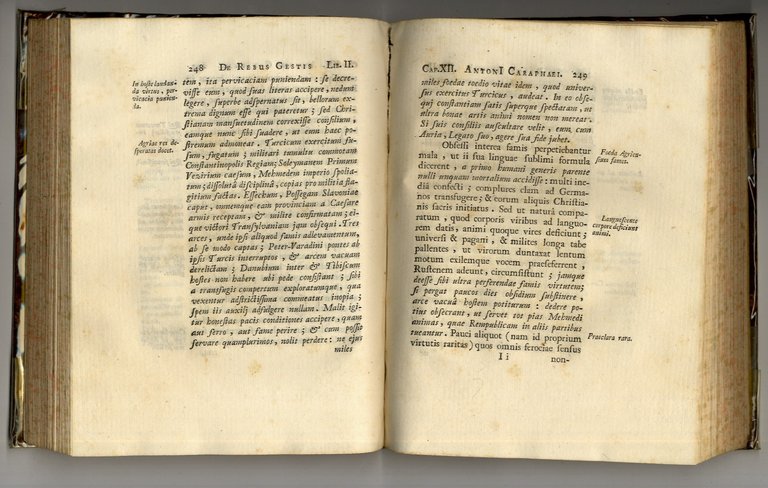 248 DE REBUS GESTIS LIB. II.
In hoste laudanda virtus, pervicacia punienda.
tem, ita pervicaciam puniendam: se decrevisse eum, quod suas literas accipere, nedum
legere, superbe adspernatus sit, bellorum extrema dignum esse qui pateretur; sed Christianam mansuetudinem correxisse consilium,
eamque nunc sibi suadere, ut eum haec postremum admoneat.
Agriae res desperatas docet.
Turcicum exercitum fusum, fugatum; militari tumultu commotam
Constantinopolis Regiam; Soleymanem Primum
Vezirium caesum, Mehmedem imperio spoliatum; dissolutâ disciplinâ, copias pro militia flagitium factas. Esseckum, Possegam Slavoniae
caput, omnemque eam provinciam a Caesare
armis receptam, & milite confirmatam; eique victori Transylvaniam jam obsequi. Tres
arces, unde ipsi aliquod famis adlevamentum,
ab se modo captas; Peter-Varadini pontes ab
ipsis Turcis interruptos, & arcem vacuam
derelictam; Danubium inter & Tibiscum
hostes non habere ubi pede consistant; sibi
a transfugis compertum exploratumque, qua
vexentur adstrictissima commeatus inopia;
spem iis auxilj adfulgere nullam. Malit igitur honestas pacis conditiones accipere, quam
aut ferro, aut fame perire; & cum possit
servare quamplurimos, nolit perdere: ne ejus
miles
CAP. XII. ANTONI CARAPHAEI. 249
miles foedae roedio vitae idem, quod universus exercitus Turcicus, audeat. In eo obsequj constantiam satis superque spectatam, ut
ultra bonae artis animi nomen non mereat.
Si suis consiliis auscultare velit, eum, cum
Auria, Legato suo, agere sua fide jubet.
Obsessi interea famis perpetiebantur
Foeda Agriensium fames.
mala, ut ii sua lingue sublimi formula
dicerent, a primo humani generis parente
nulli unquam mortalium accidisse: multi inediâ confecti; complures clam ad Germanos transfugere; & eorum aliquis Christianis sacris initiatus. Sed ut naturâ comparatum, quod corporis viribus ad languorem datis, animi quoque vires deficiunt;
Languescente corpore deficiunt animi.
universi & pagani, & milites longa tabe
pallentes, ut virorum duntaxat lentum
motum exilemque vocem praeseferrent,
Rustenem adeunt, circumsistunt; jamque
deesse sibi ultra perferendae famis virtutem;
si pergat paucos dies obsidium sustinere,
arce vacuâ hostem potiturum: dedere potius obsecrant, ut servet tot pias Mehmedi
animas, quae Rempublicam in aliis partibus
tueantur. Pauci aliquot (nam id proprium
Praeclara rara.
virtutis raritas) quos omnis ferociae sensus
I i non-